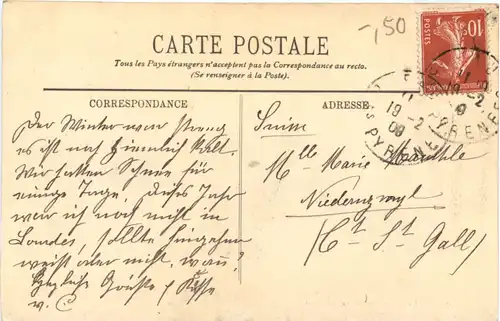 -,50
CARTE POSTALE
Tous les Pays étrangers n'acceptent pas la Correspondance au recto.
(Se renseigner à la Poste).
CORRESPONDANCE
ADRESSE
10
19-2
09
PYRENE
Der Winter war streng
es ist noch ziemlich kalt.
Wir hatten Schnee für
einige Tage. Dieses Jahr
war ich noch nicht in
Lourdes, sollte hingehen
weiß aber nicht, wann?
Herzliche Grüsse & Küsse
v. C
Suisse
Mlle Marie
Niederuzwyl
Ct St Gall